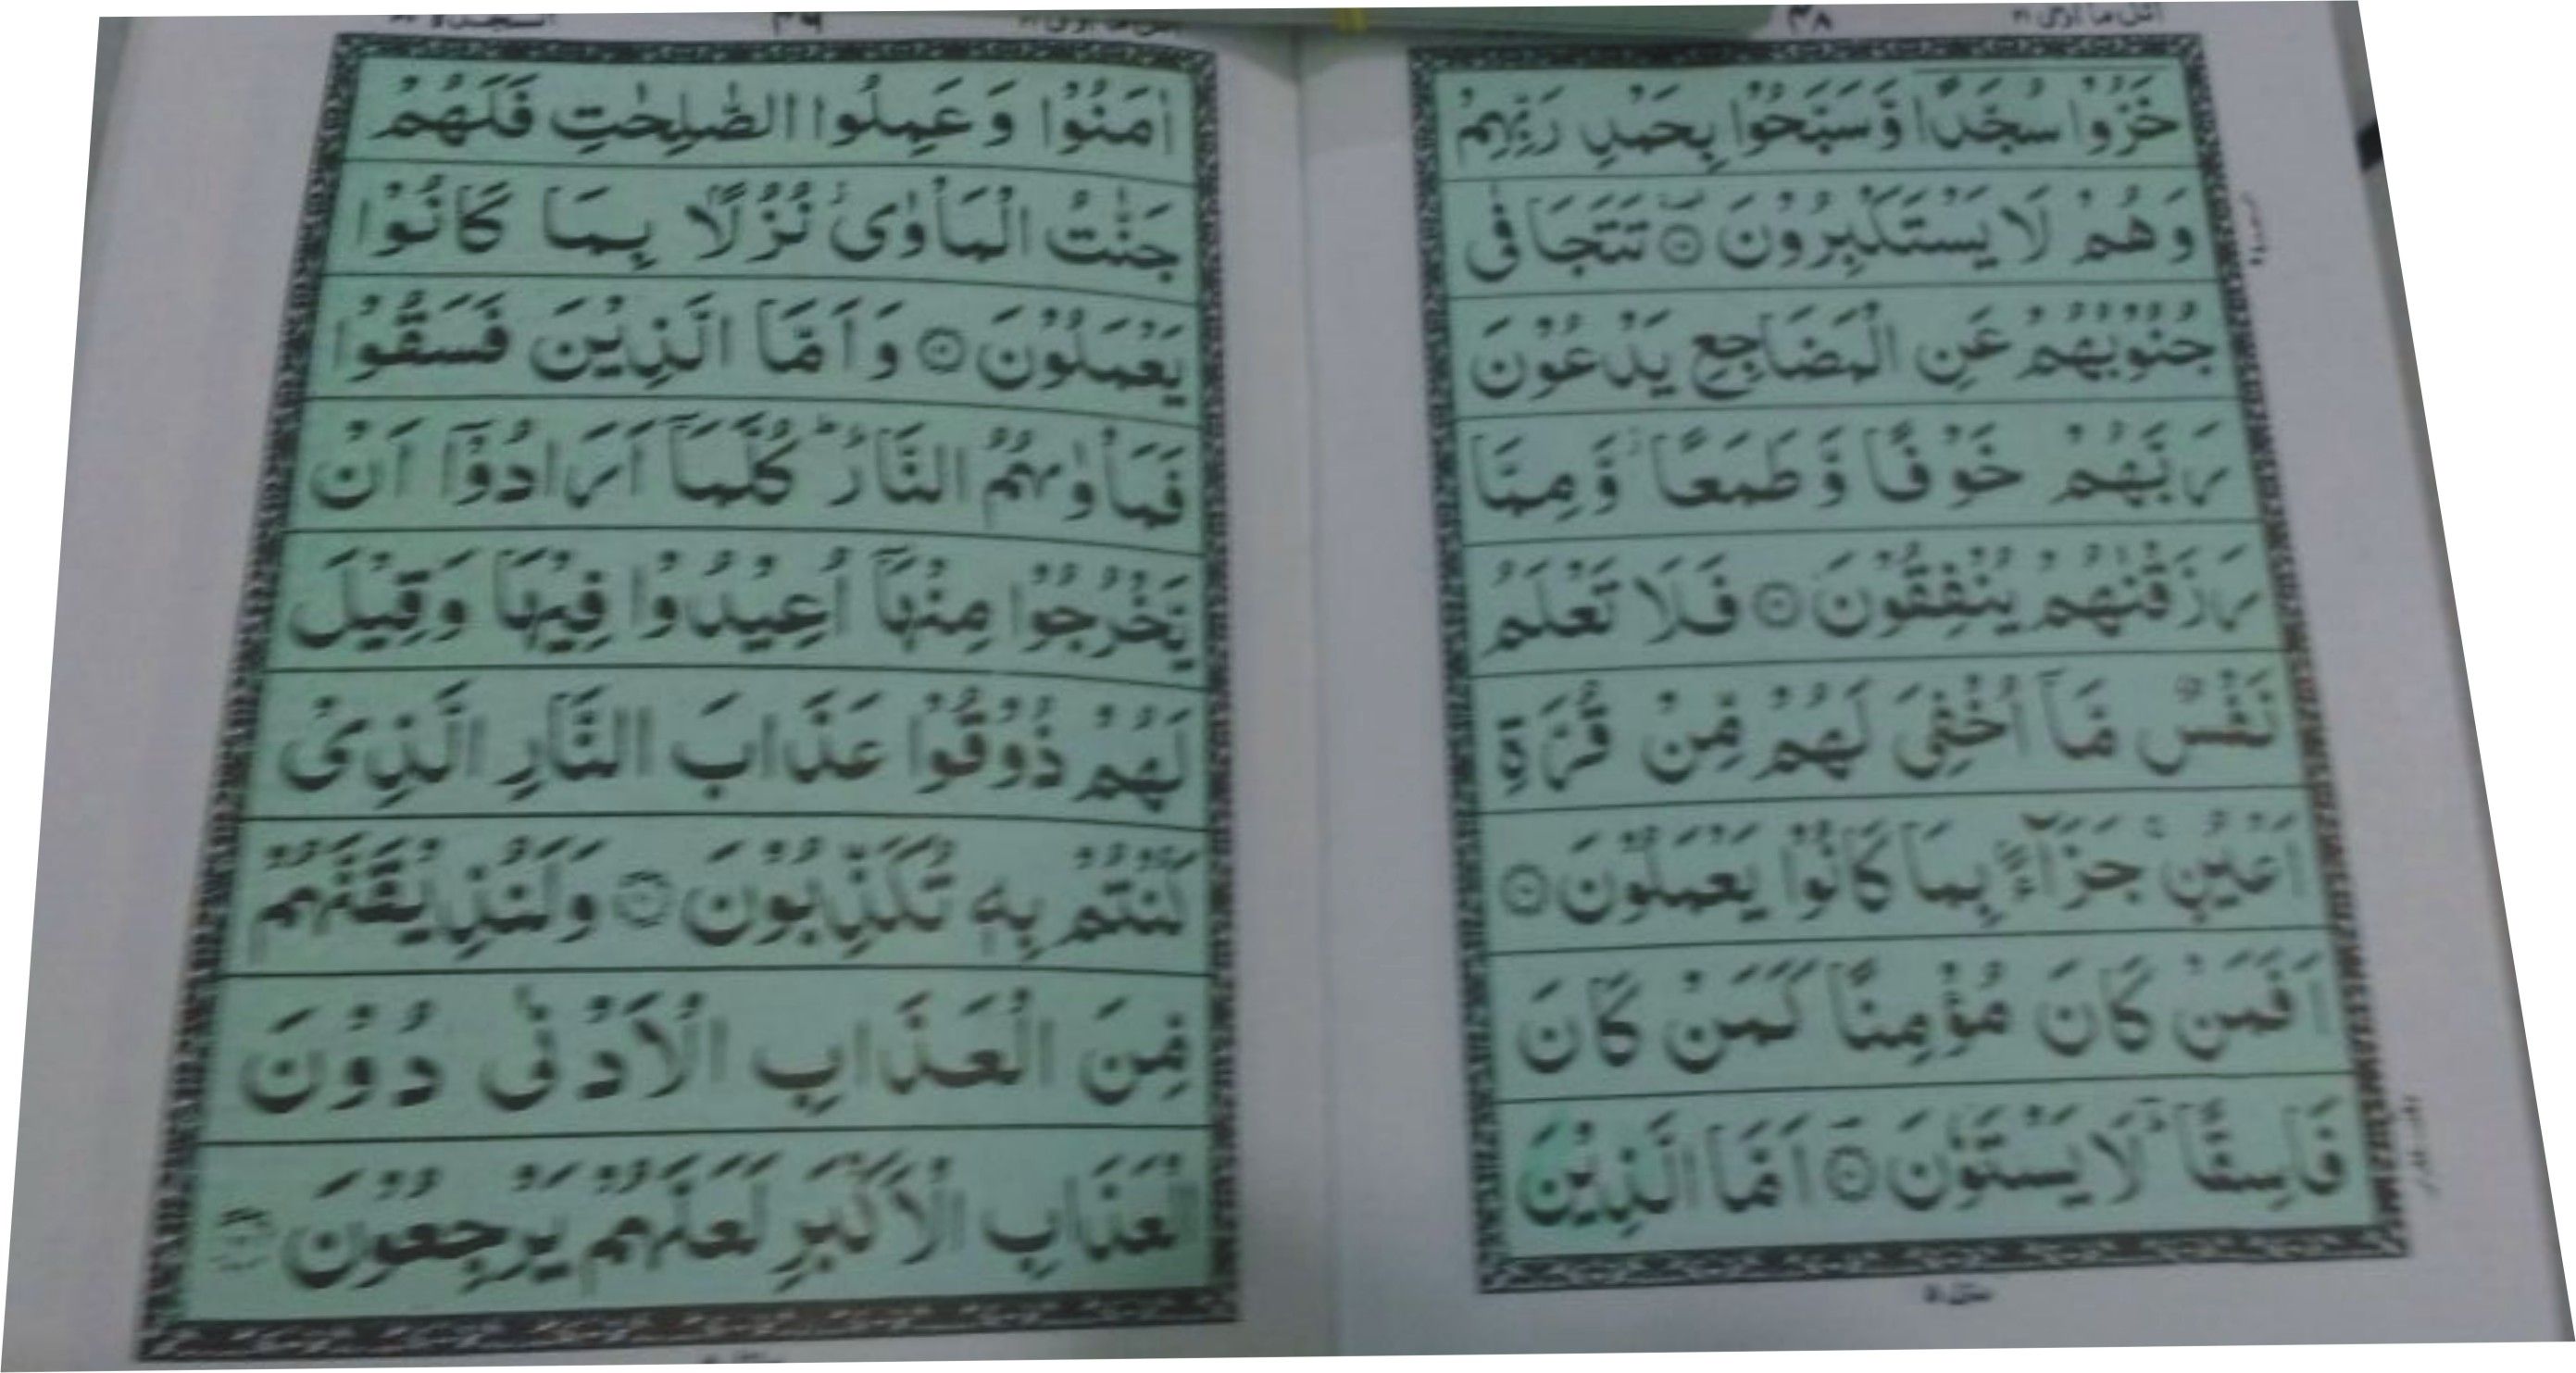 اتل ما اوحی ۲۱
۴۸
خَرُّوْا سُجَّدًا وَّسَبَّحُوْا بِحَمْدِ رَبِّهِمْ
وَهُمْ لَا يَسْتَكْبِرُوْنَ تَتَجَافٰى
جُنُوْبُهُمْ عَنِ الْمَضَاجِعِ يَدْعُوْنَ
رَبَّهُمْ خَوْفًا وَّطَمَعًا وَّمِمَّا
رَزَقْنٰهُمْ يُنْفِقُوْنَ فَلَا تَعْلَمُ
نَفْسٌ مَّآ اُخْفِيَ لَهُمْ مِّنْ قُرَّةِ
اَعْيُنٍ جَزَآءًۢ بِمَا كَانُوْا يَعْمَلُوْنَ
اَفَمَنْ كَانَ مُؤْمِنًا كَمَنْ كَانَ
فَاسِقًا لَا يَسْتَوٗنَ اَمَّا الَّذِيْنَ
۴۹
اٰمَنُوْا وَعَمِلُوا الصّٰلِحٰتِ فَلَهُمْ
جَنّٰتُ الْمَاْوٰى نُزُلًا بِمَا كَانُوْا
يَعْمَلُوْنَ وَاَمَّا الَّذِيْنَ فَسَقُوْا
فَمَاْوٰىهُمُ النَّارُ كُلَّمَآ اَرَادُوْٓا اَنْ
يَّخْرُجُوْا مِنْهَآ اُعِيْدُوْا فِيْهَا وَقِيْلَ
لَهُمْ ذُوْقُوْا عَذَابَ النَّارِ الَّذِيْ
كُنْتُمْ بِهٖ تُكَذِّبُوْنَ وَلَنُذِيْقَنَّهُمْ
مِّنَ الْعَذَابِ الْاَدْنٰى دُوْنَ
الْعَذَابِ الْاَكْبَرِ لَعَلَّهُمْ يَرْجِعُوْنَ